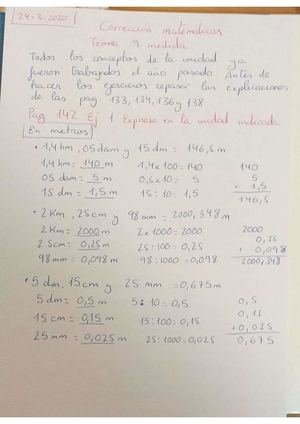 24-3-2020
Corrección matemáticas
Tema 9 medida
Todos los conceptos de la unidad ya
fueron trabajados el año pasado Antes de
hacer los ejercicios repasar las explicaciones
de las pag 133, 134, 136 y 138
Pag 142 Ej 1 Expresa en la unidad indicada
En metros
• 1,4 hm, 05 dam y 15 dm = 146,5 m
1,4 hm = 140 m 1,4 x 100 = 140 140
05 dam = 5 m 0,5 x 10 = 5 5
15 dm = 1,5 m 15 : 10 = 1,5 + 1,5
146,5
• 2 Km, 25 cm y 98 mm = 2000,348 m
2 Km = 2000 m 2 x 1000 = 2000 2000
25 cm = 0,25 m 25 : 100 = 0,25 0,25
98 mm = 0,098 m 98 : 1000 = 0,098 + 0,098
2000,348
• 5 dm, 15 cm y 25 mm = 0,675 m
5 dm = 0,5 m 5 : 10 = 0,5 0,5
15 cm = 0,15 m 15 : 100 = 0,15 0,15
25 mm = 0,025 m 25 : 1000 = 0,025 + 0,025
0,675